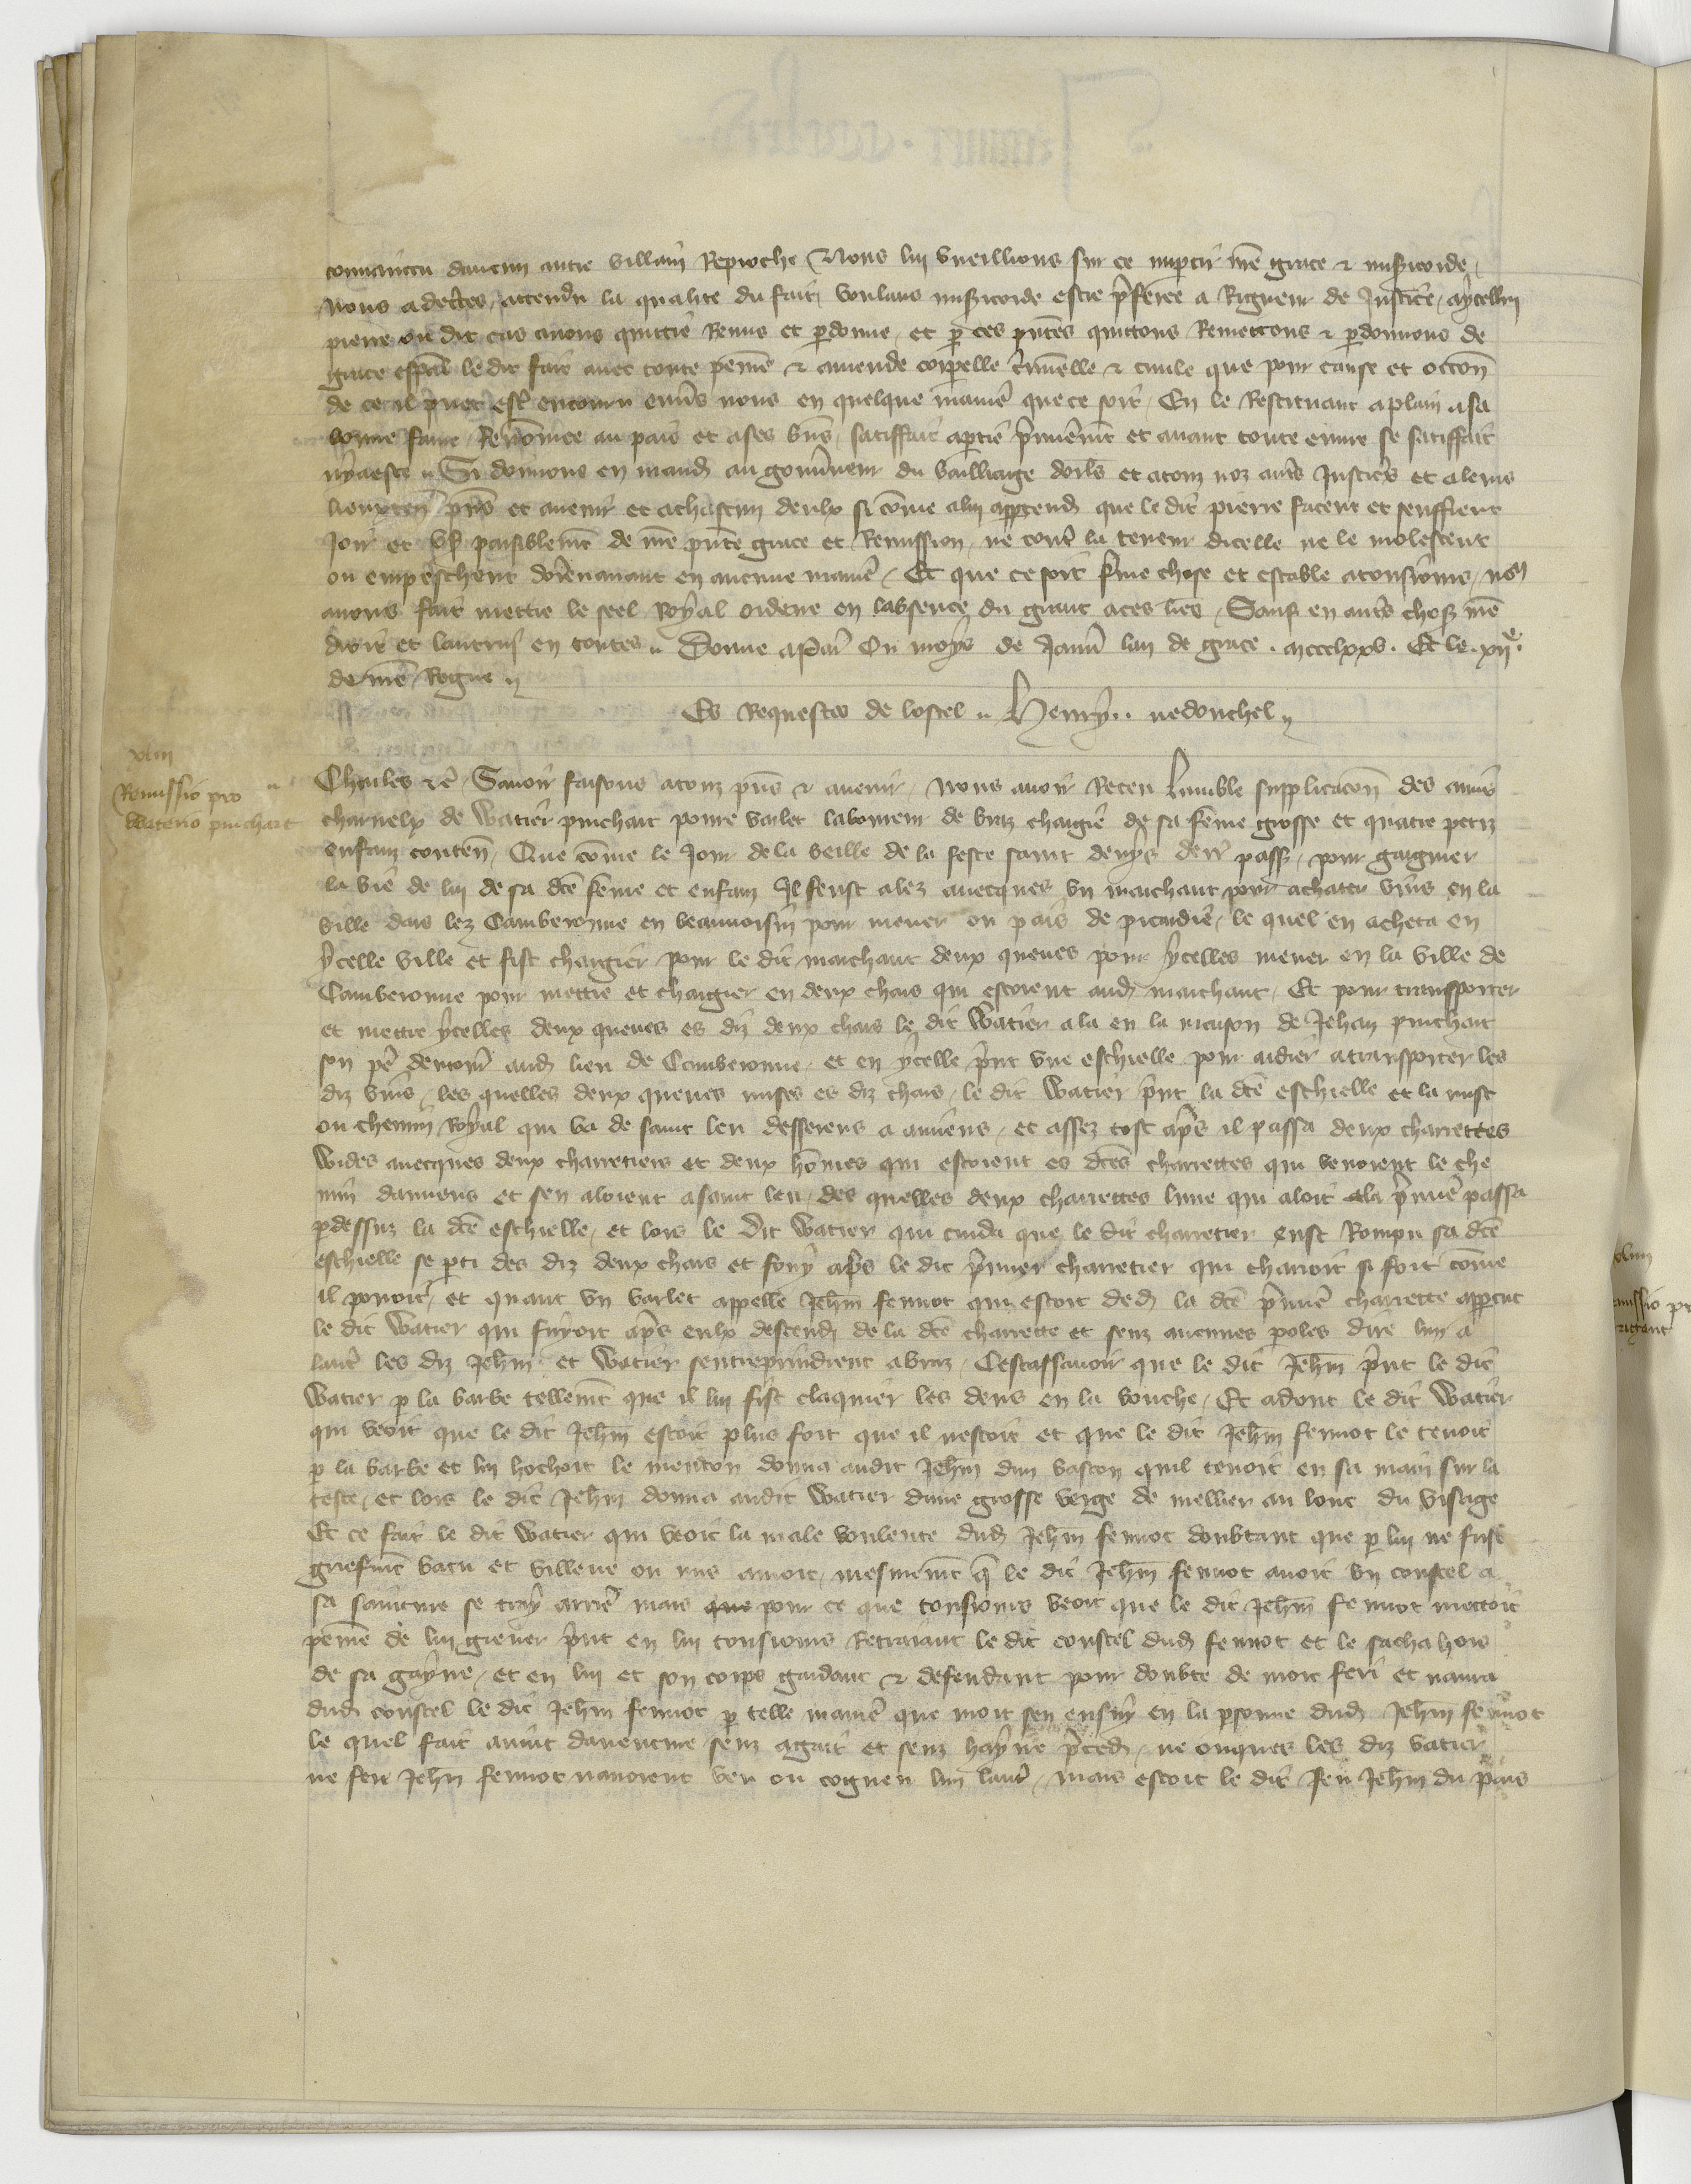 conuaincu daucun autre villain Reproche Nous lui vueillions sur ce impartir nre grace & misericorde
Nous adecertes attendu la qualite du fait voulans misericorde estre preferee a Rigueur de Justice aycellui
pierre ou dit cas auons quittie Remis et pardonne et par ces presentes quittons Remettons & pardonnons de
grace especial le dit fait auec toute peine & amende corporelle criminelle & ciuile que pour cause et occon
de ce il puet estre encouru enuers nous en quelque maniere que ce soit En le Restituant aplain asa
bonne fame Renommee au pais et ases biens satisffait apartie premierement et auant toute euure se satiffait
nyaeste Si donnons en mand au gouuerneur du bailliage dorliens et atouz noz autres Justiciers et aleurs
lieuxten presens et auenir et achascun deulx si come alui appartendra que le dit pierre facent et seuffrent
Joir et user paisiblement de nre presente grace et Remission ne contre la teneur dicelle ne le molestent
ou empeschent dorenauant en aucune maniere Et que ce soit ferme chose et estable atousiours nous
auons fait mettre le seel Royal ordene en labsence du grant aces lres Sauf en autres choses nre
droit et lautrui en toutes Donne aParis Ou moys de Januier lan de grace mccclxxv Et le xiie
de nre Regne
Es Requestes de lostel Henry nedonchel
xliii
Remissio pro
Waterio pinchart
Charles &c Sauoir faisons atouz presens & auenir Nous auoir Receu lumble supplicacon des amis
charnelx de Watier pinchart poure varlet laboureur de braz chargie de sa feme grosse et quatre petiz
enfanz conten Que come le Jour de la veille de la feste saint denys derr passe pour gaignier
la vie de lui de sa dce feme et enfanz Il feust alez auecques vn marchant pour achater vins en la
ville dais lez Camberonne en beauuoisin pour mener ou pais de picardie le quel en acheta en
ycelle ville et fist chargier pour le dit marchant deux queues pour ycelles mener en la ville de
Camberonne pour mettre et chargier en deux chars qui estoient aud marchant Et pour transporter
et mettre ycelles deux queues es diz deux chars le dit Watier ala en la maison de Jehan pinchart
son pere demour aud lieu de Camberonne et en ycelle print vne eschielle pour aidier atransporter les
diz vins les quelles deux queues mises es diz chars le dit Watier print la dce eschielle et la mist
ou chemin Royal qui va de saint leu desserens a amiens et assez tost apres il passa deux charrettes
Wides auecques deux charretiers et deux homes qui estoient es dces charrettes qui venoient le che
min damiens et sen aloient asaint leu des quelles deux charrettes lune qui aloit ala premiere passa
pdessuz la dce eschielle et lors le dit Watier qui cuida que le dit charretier eust Rompu sa dce
eschielle se parti des diz deux chars et fouy apres le dit premier charretier qui charioit si fort come
il pouoit et quant vn varlet appelle Jehan fernot qui estoit ded la dce premiere charrette apparcut
le dit Watier qui fuyoit apres eulx descendi de la dce charrette et senz aucunes paroles dire lun a
lautre les diz Jehan et Watier sentreprindrent abraz Cestassauoir que le dit Jehan print le dit
Watier p la barbe tellement que il lui fist claquier les dens en la bouche Et adont le dit Watier
qui veoit que le dit Jehan estoit plus fort que il nestoit et que le dit Jehan fernot le tenoit
p la barbe et lui hochoit le menton donna audit Jehan dun baston quil tenoit en sa main sur la
teste et lors le dit Jehan donna audit Watier dune grosse verge de mellier au lonc du visage
Et ce fait le dit Watier qui veoit la male voulente dud Jehan fernot doubtant que p lui ne fust
griefment batu et villene ou mis amort mesmement q le dit Jehan fernot auoit vn coustel a
sa sainture se tray arriere mais que pour ce que tousiours veoit que le dit Jehan fernot mettoit
peine de lui greuer print en lui tousiours Retraiant le dit coustel dud fernot et le sacha hors
de sa gayne et en lui et son corps gardant & defendant pour doubte de mort feri et naura
dud coustel le dit Jehan fernot p telle maniere que mort sen ensuy en la psonne dud Jehan fernot
le quel fait auint dauenture senz agait et senz hayne preced ne onques les diz Vatier
ne feu Jehan fernot nauoient veu ou cogneu lun lautre mais estoit le dit feu Jehan du pais